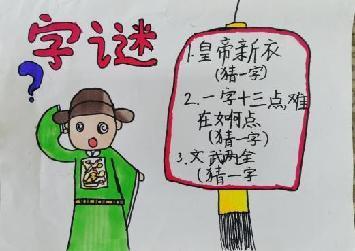 字谜
?
1.皇帝新衣
(猜一字)
2.一字十三点难
在如何点
(猜一字)
3.文武两全
(猜一字